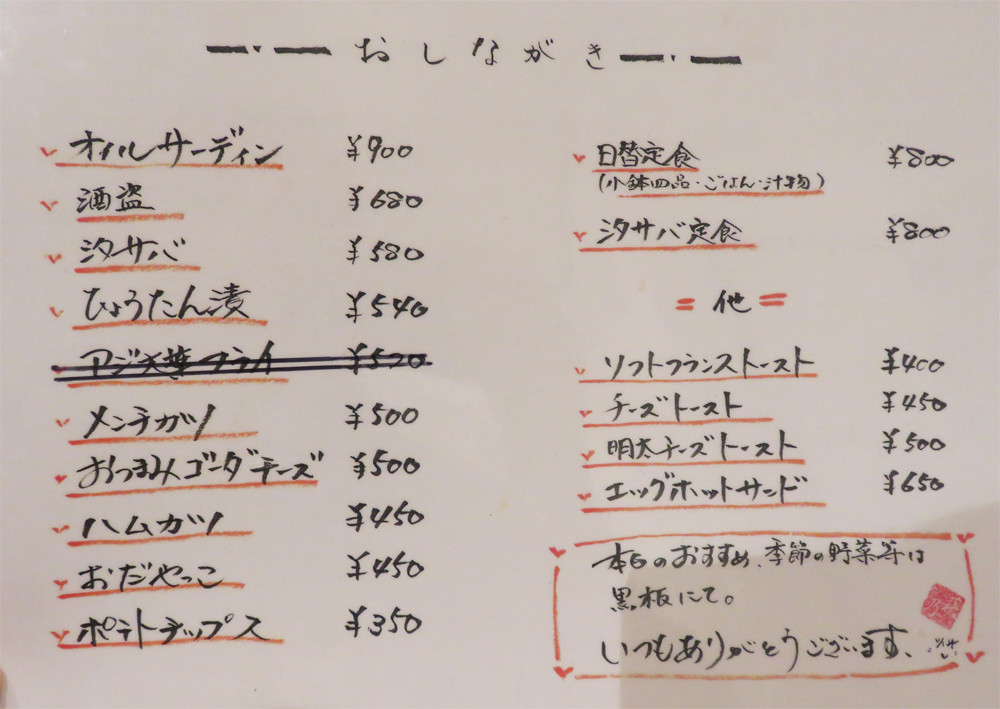 おしながき
オイルサーディン ¥900
酒盗 ¥680
汐サバ ¥580
ひょうたん漬 ¥540
アジ大葉フライ ¥520
メンチカツ ¥500
おつまみゴーダチーズ ¥500
ハムカツ ¥450
おだやっこ ¥450
ポテトチップス ¥350
日替定食 ¥800
(小鉢四品・ごはん・汁物)
汐サバ定食 ¥800
= 他 =
ソフトフランストースト ¥400
チーズトースト ¥450
明太チーズトースト ¥500
エッグホットサンド ¥650
本日のおすすめ、季節の野菜等は
黒板にて。
いつもありがとうございます、